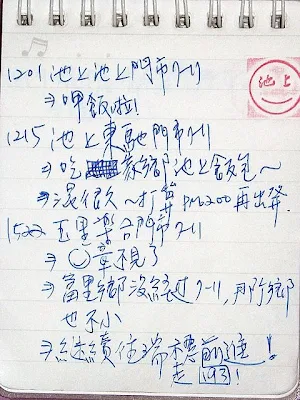 1201 池上池上門市7-11
⇒呷飯啦!
池上
1215 池上東馳門市7-11
⇒吃 家鄉池上飯包~
⇒混很久~打算 pm200 再出發.
1522 玉里樂合門市7-11
⇒ 章不見了
⇒富里鄉沒經過7-11, 所以鄉
也不小
⇒繼續往瑞穗前進!
走 193!